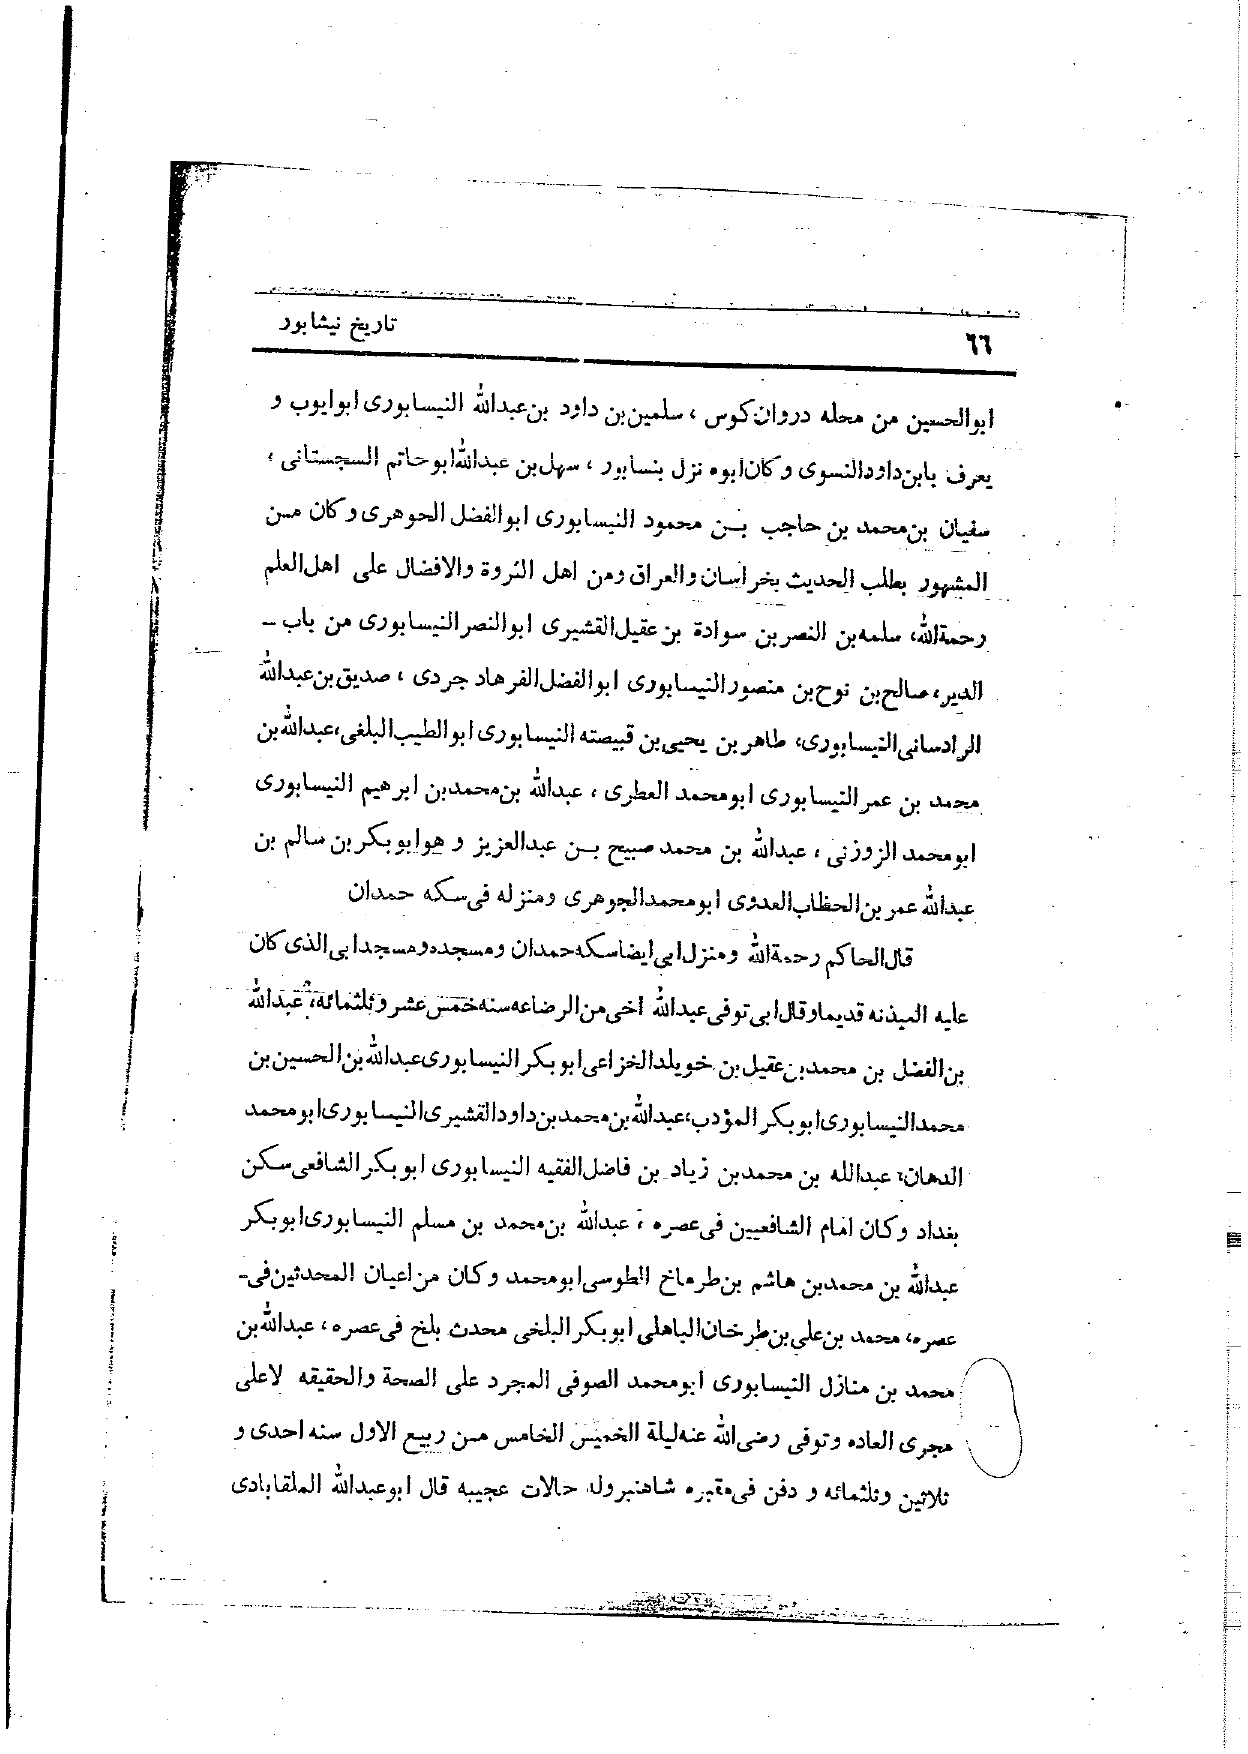 ٦٦
تاریخ نیشابور
ابوالحسین من محله دروان‌کوس ، سلمین‌بن داود بن‌عبدالله النیسابوری ابوایوب و
یعرف بابن‌داودالنسوی وکان‌ابوه نزل بنسابور ، سهل‌بن عبدالله‌ابوحاتم السجستانی ،
سفیان بن‌محمد بن حاجب بن محمود النیسابوری ابوالفضل الحوهری وکان من
المشهور بطلب الحدیث بخراسان والعراق ومن اهل الثروة والافضال علی اهل‌العلم
رحمةالله، سلمه‌بن النصربن سوادة بن‌عقیل‌القشیری ابوالنصرالنیسابوری من باب ـ
الدیر، صالح‌بن نوح‌بن منصورالنیسابوری ابوالفضل‌الفرهاد جردی ، صدیق‌بن‌عبدالله
الرادسانی‌النیسابوری، طاهربن یحیی‌بن قبیصته النیسابوری ابوالطیب‌البلغی،عبدالله‌بن
محمد بن عمرالنیسابوری ابومحمد العطری ، عبدالله بن‌محمدبن ابرهیم النیسابوری
ابومحمد الزوزنی ، عبدالله بن محمد صبیح بن عبدالعزیز و هوابوبکربن سالم بن
عبدالله عمربن‌الحظاب‌العدوی ابومحمدالجوهری ومنزله فی‌سکه حمدان
قال‌الحاکم رحمةالله ومنزل‌ابی‌ایضاسکه‌حمدان ومسجده‌ومسجدابی‌الذی‌کان
علیه المیذنه قدیماوقال‌ابی‌توفی‌عبدالله اخی‌من‌الرضاعه‌سنه‌خمس‌عشروثلثمائه، عبدالله
بن‌الفضل بن محمدبن‌عقیل‌بن خویلدالخزاعی‌ابوبکرالنیسابوری‌عبدالله‌بن‌الحسین‌بن
محمدالنیسابوری‌ابوبکرالمؤدب،عبدالله‌بن‌محمدبن‌داودالقشیری‌النیسابوری‌ابومحمد
الدهان، عبدالله بن محمدبن زیاد بن فاضل‌الفقیه النیسابوری ابوبکرالشافعی‌سکن
بغداد وکان امام الشافعیین فی‌عصره ، عبدالله بن‌محمد بن مسلم النیسابوری‌ابوبکر
عبدالله بن محمدبن هاشم بن‌طرماخ الطوسی‌ابومحمد وکان من‌اعیان المحدثین‌فی‌ـ
عصره، محمد بن‌علی‌بن‌طرخان‌الباهلی ابوبکرالبلخی محدث بلخ فی‌عصره ، عبدالله‌بن
محمد بن منازل النیسابوری ابومحمد الصوفی المجرد علی الصحة والحقیقه لاعلی
مجری العاده وتوفی رضی‌الله عنه‌لیلة الخمیس الخامس من ربیع الاول سنه احدی و
ثلاثین وثلثمائه و دفن فی‌مقبره شاهنبروله حالات عجیبه قال ابوعبدالله الملقابادی